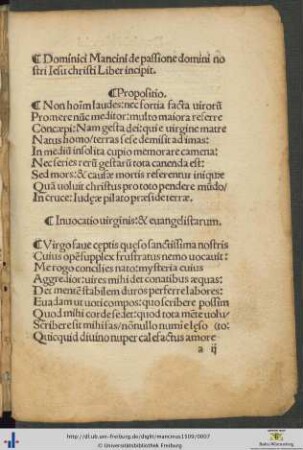 ¶ Dominici Mancini de passione domini no
stri Iesu christi Liber incipit.
¶ Propositio.
¶ Non hoīm laudes: nec fortia facta virorū
Promere nūc meditor: multo maiora referre
Concæpi: Nam gesta dei: qui e virgine matre
Natus homo/terras sese demisit ad imas:
In mediū insolita cupio memorare camena:
Nec series rerū gestarū tota canenda est:
Sed mors: & causæ mortis referentur iniquæ
Quā uoluit christus pro toto pendere mūdo/
In cruce: Iudææ pilato præside terræ.
¶ Inuocatio uirginis: & euangelistarum.
¶ Virgo faue ceptis quęso sanctissima nostris
Cuius opē supplex frustratus nemo uocauit:
Me rogo concilies nato: mysteria cuius
Aggredior: uires mihi det conatibus æquas:
Det mentē stabilem duros perferre labores:
Euadam ut uoti compos: quo scribere possim
Quod mihi corde sedet: quod tota mēte uolu/
Scribere sit mihi fas/nō nullo numīe lęso (to:
Quicquid diuino nuper calefactus amore
a ij
http://dl.ub.uni-freiburg.de/diglit/mancinus1509/0007
© Universitätsbibliothek Freiburg
Baden-Württemberg